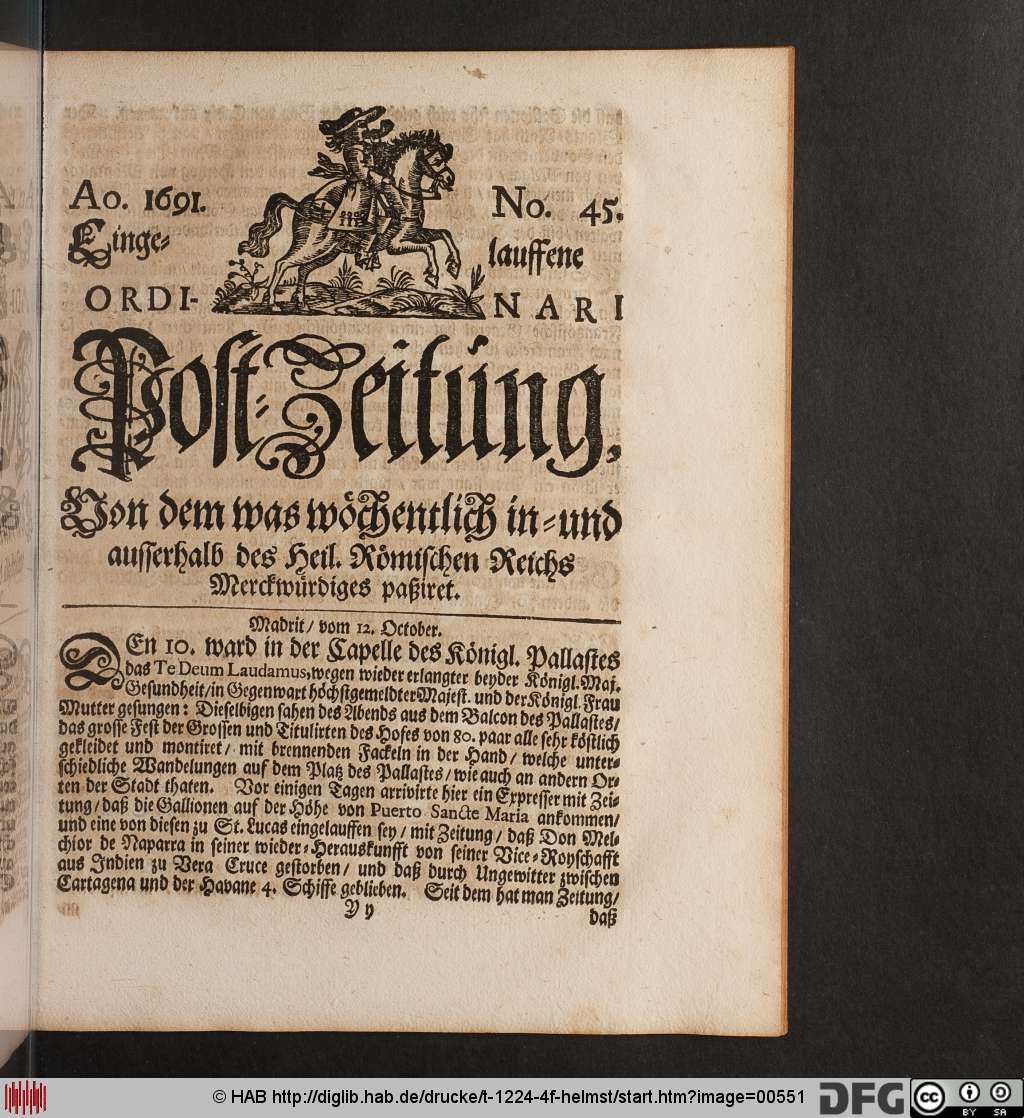 Ao. 1691. No. 45.
Einge= lauffene
ORDI- NARI
Post=Zeitung,
Von dem was wöchentlich in=und
ausserhalb des Heil. Römischen Reichs
Merckwürdiges paßiret.
Madrit/ vom 12. October.
DEn 10. ward in der Capelle des Königl. Pallastes
das Te Deum Laudamus, wegen wieder erlangter beyder Königl. Maj.
Gesundheit/in Gegenwart höchstgemeldter Majest. und der Königl. Frau
Mutter gesungen: Dieselbigen sahen des Abends aus dem Balcon des Pallastes/
das grosse Fest der Grossen und Titulirten des Hofes von 80. paar alle sehr köstlich
gekleidet und montiret/ mit brennenden Fackeln in der Hand/ welche unter=
schiedliche Wandelungen auf dem Platz des Pallastes/ wie auch an andern Or=
ten der Stadt thaten. Vor einigen Tagen arrivirte hier ein Expresser mit Zei=
tung/ daß die Gallionen auf der Höhe von Puerto Sancte Maria ankommen/
und eine von diesen zu St. Lucas eingelauffen sey/ mit Zeitung/ daß Don Mel=
chior de Naparra in seiner wieder=Herauskunfft von seiner Vice=Royschafft
aus Indien zu Vera Cruce gestorben/ und daß durch Ungewitter zwischen
Cartagena und der Havane 4. Schiffe geblieben. Seit dem hat man Zeitung/
Y y daß
© HAB http://diglib.hab.de/drucke/t-1224-4f-helmst/start.htm?image=00551 DFG cc BY SA